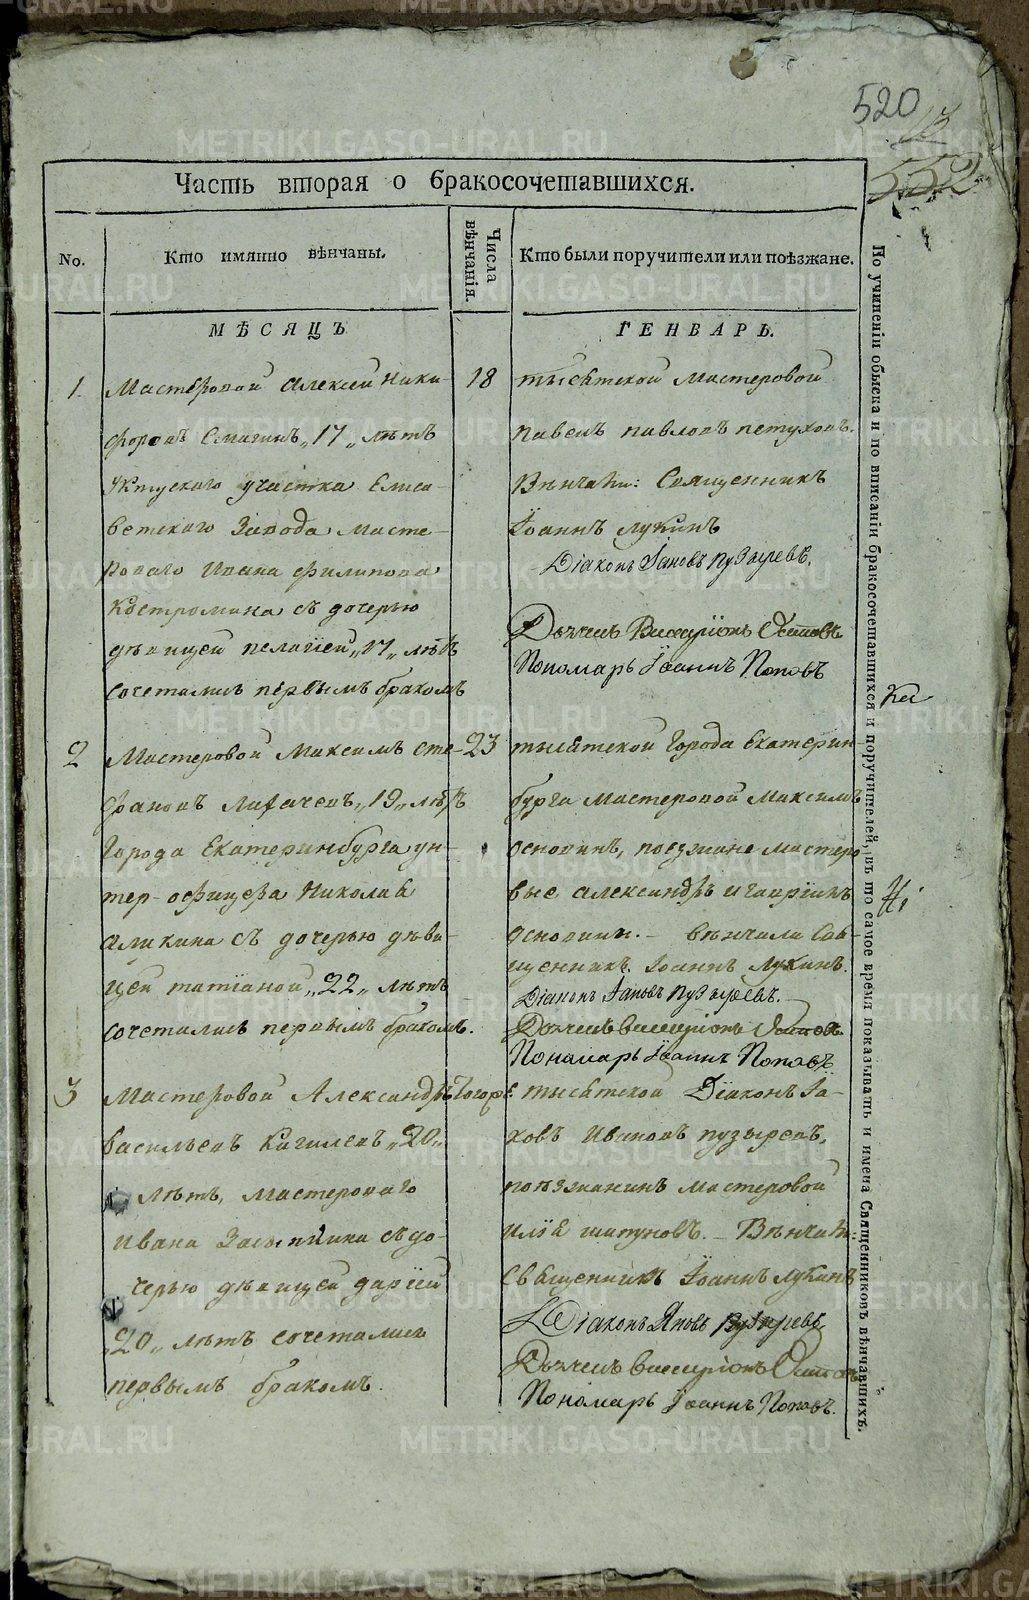 520
13
552
Часть вторая о бракосочетавшихся.
No.
Кто имянно вѣнчаны.
Числа вѣнчанія.
Кто были поручители или поѣзжане.
МѢСЯЦЪ
ГЕНВАРЬ.
1.
Мастеровой Алексей Ники-
форовъ Смагинъ „17„ лѣтъ
Уктускаго участка Елиса-
ветскаго Завода Масте-
роваго Ивана Филипова
Костромина съ дочерью
дѣвицей Пелагіей „17„ лѣтъ
сочетались первымъ бракомъ
18
тысятской Мастеровой
Павелъ Павловъ Петуховъ.
Вѣнчали: Священникъ
Іоаннъ Лукинъ
Діаконъ Іаковъ Пузыревъ.
Дьячекъ Виссаріонъ
Пономарь Іоаннъ Поповъ
2
Мастеровой Максимъ Сте-
фановъ Лихачевъ „19„ лѣтъ
Города Екатеринбурга ун-
тер-офицера Николая
Аликина съ дочерью дѣви-
цей Татіаной „22„ лѣтъ
сочетались первымъ бракомъ.
23
тысятской Города Екатерин-
бурга Мастеровой Максимъ
Осповинъ, поезжане Мастеро-
вые Александръ и Гавріилъ
Осповины. – вѣнчали Свя-
щенникъ Іоаннъ Лукинъ.
Діаконъ Іаковъ Пузыревъ.
Дьячекъ Виссаріонъ
Пономарь Іоаннъ Поповъ
3
Мастеровой Александръ
Васильевъ Кагилевъ „20„
лѣтъ, Мастероваго
Ивана Засыпкина съ до-
черью дѣвицей Даріей
„20„ лѣтъ сочетались
первымъ бракомъ.
Тогоже
тысятской Діаконъ Іа-
ковъ Ивановъ Пузыревъ,
поѣзжанинъ Мастеровой
Илія Шатуновъ. – Вѣнчали:
Священникъ Іоаннъ Лукинъ
Діаконъ Яковъ Пузыревъ
Дьячекъ Виссаріонъ
Пономарь Іоаннъ Поповъ.
По учиненіи обыска и по вписаніи бракосочетавшихся и поручителей, въ то самое время показывать и имена Священниковъ вѣнчавшихъ.
METRIKI.GASO-URAL.RU